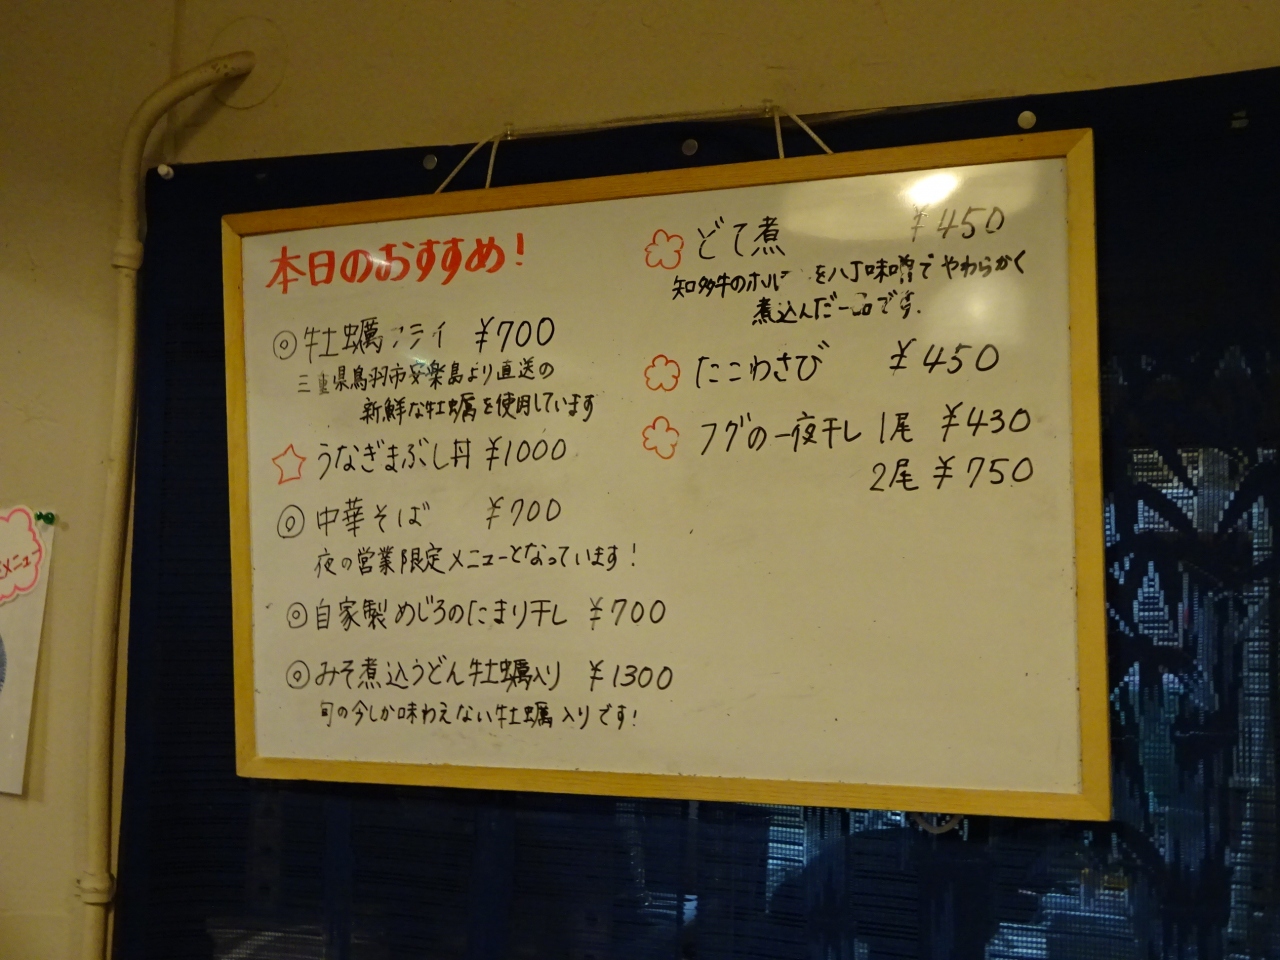 本日のおすすめ!
◎ 牡蠣フライ ¥700
三重県鳥羽市安楽島より直送の
新鮮な牡蠣を使用しています
☆ うなぎまぶし丼 ¥1000
◎ 中華そば ¥700
夜の営業限定メニューとなっています!
◎ 自家製めじろのたまり干し ¥700
◎ みそ煮込うどん牡蠣入り ¥1300
旬の今しか味わえない牡蠣入りです!
どて煮 ¥450
知多牛のホル を八丁味噌でやわらかく
煮込んだ一品です.
たこわさび ¥450
フグの一夜干し 1尾 ¥430
2尾 ¥750
メニュー